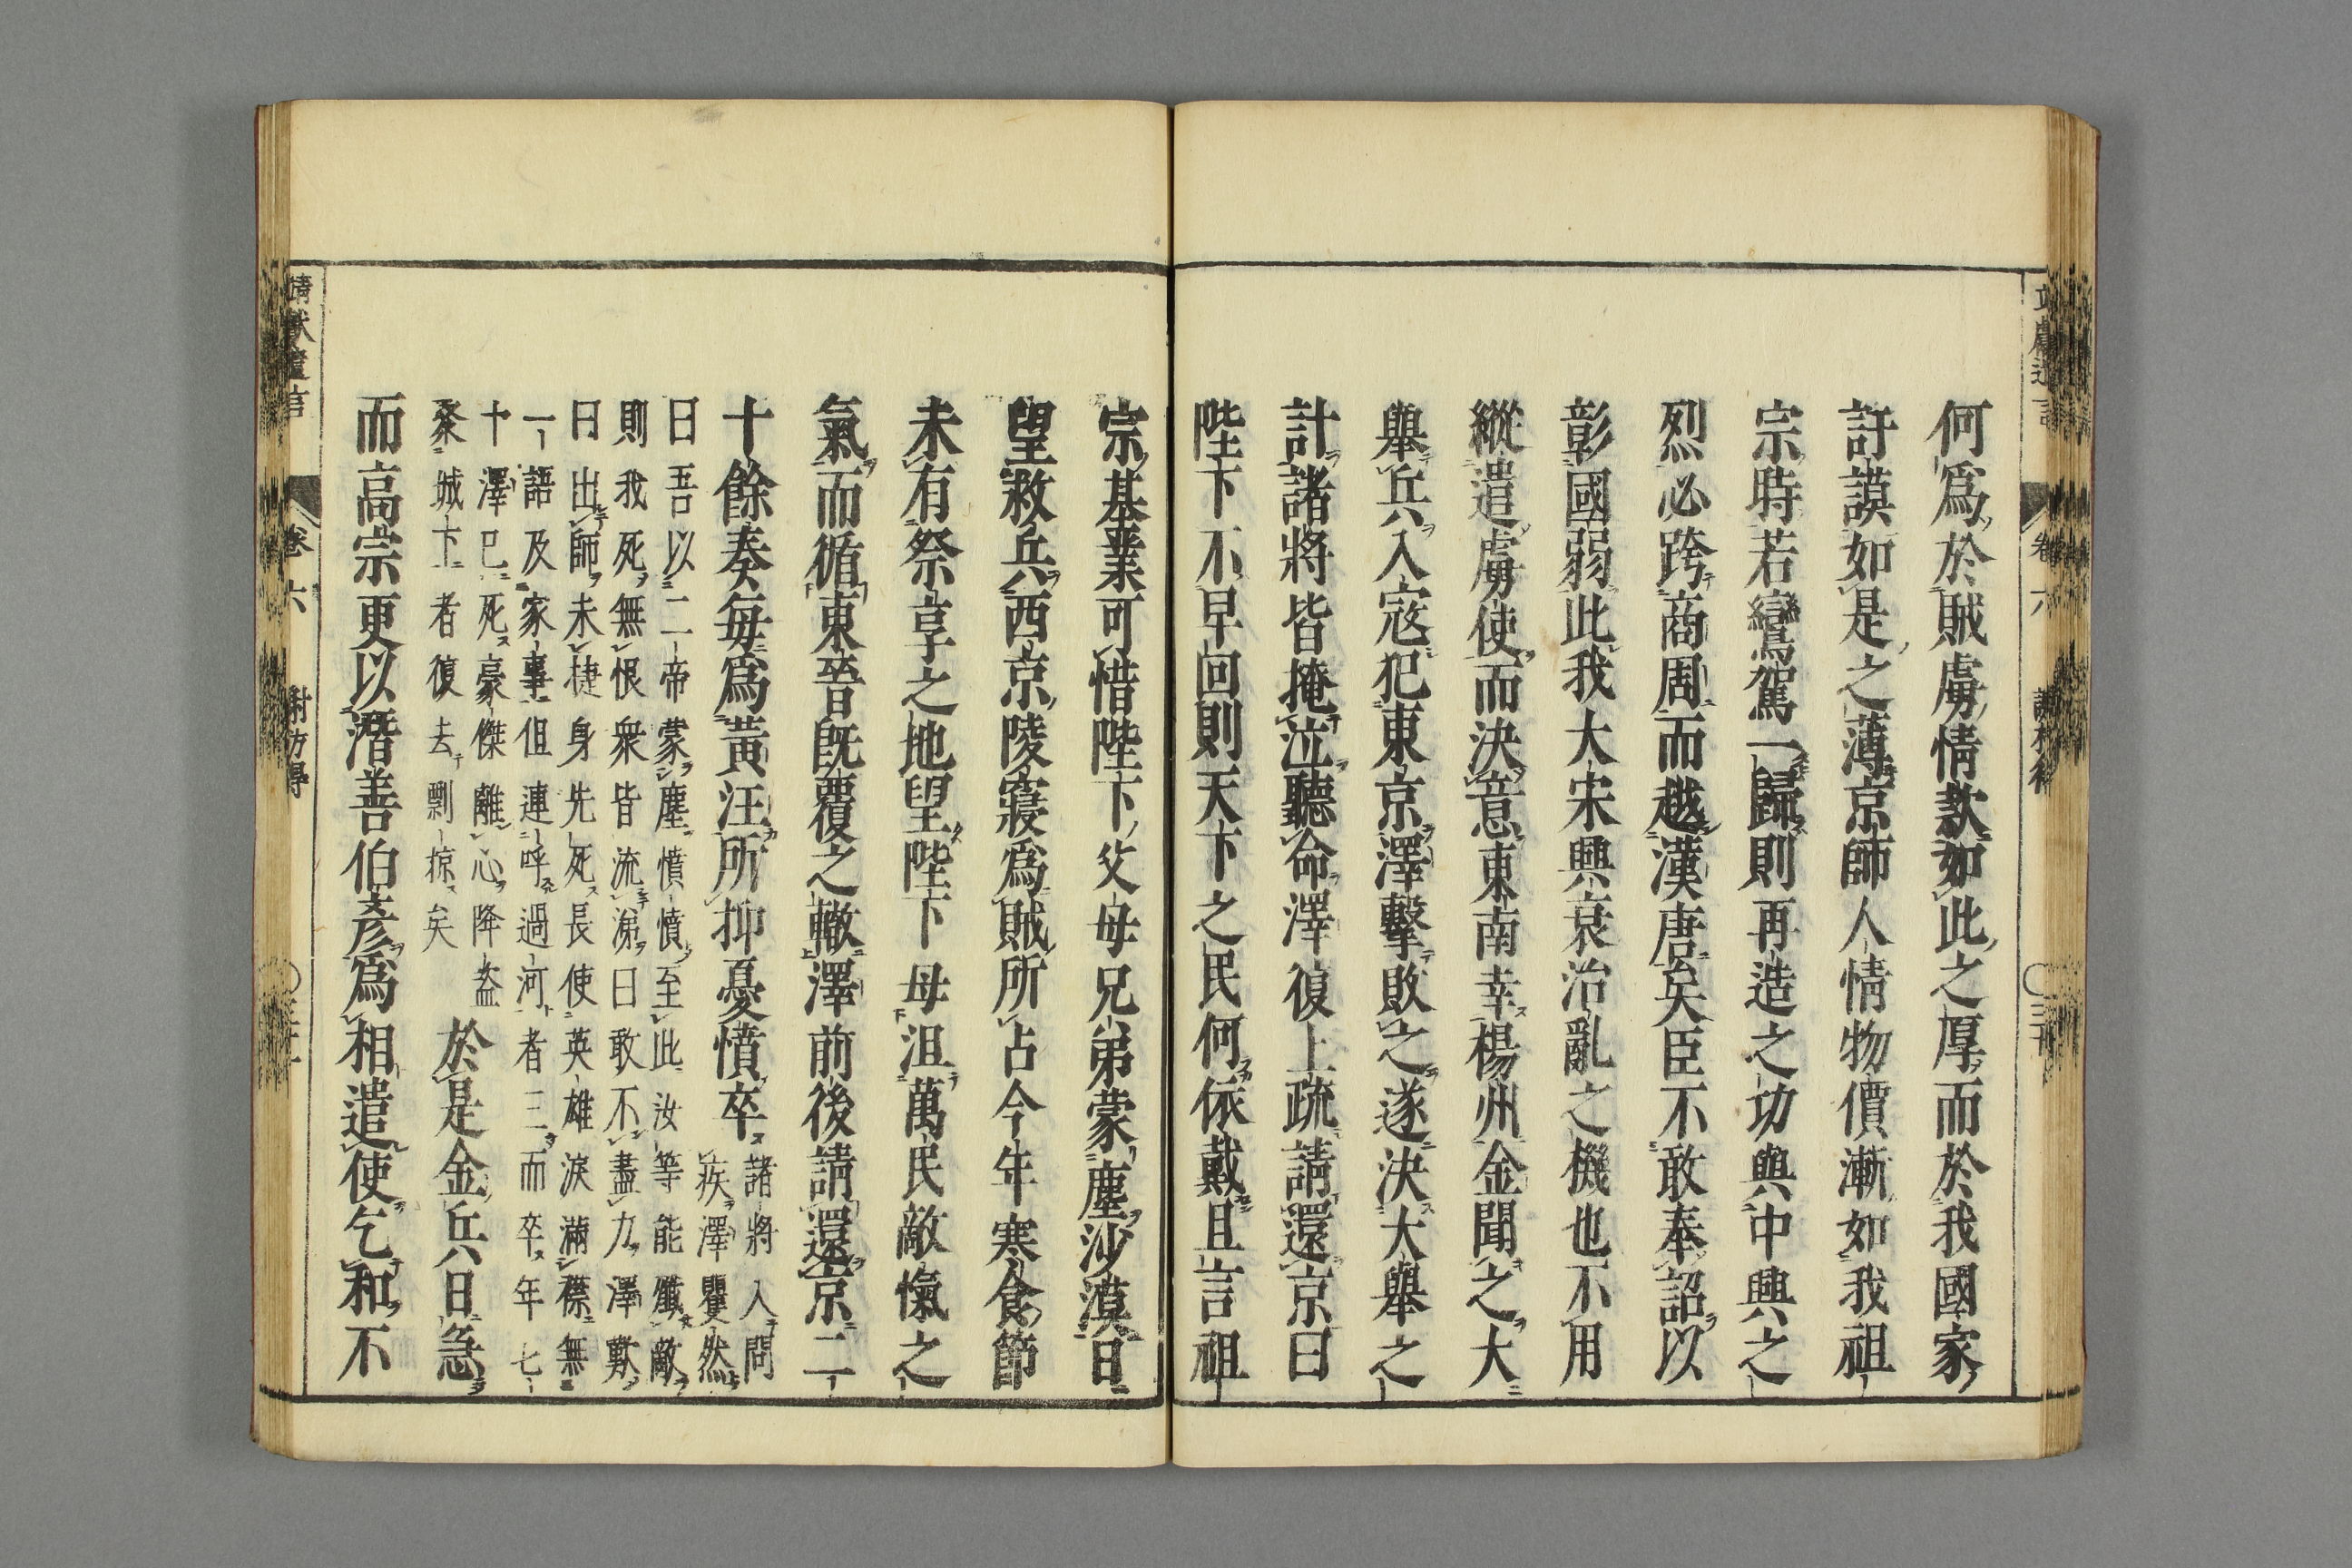 何爲於賊虜情款如此之厚而於我國家
訏謨如是之薄京師人情物價漸如我祖
宗時若鸞駕一歸則再造之功與中興之
烈必跨商周而越漢唐矣臣不敢奉詔以
彰國弱此我大宋興衰治亂之機也不用
縱遣虜使而決意東南幸楊州金聞之大
舉兵入寇犯東京澤擊敗之遂決大舉之
計諸將皆掩泣聽命澤復上疏請還京曰
陛下不早回則天下之民何依戴且言祖
宗基業可惜陛下父母兄弟蒙塵沙漠日
望救兵西京陵寢爲賊所占今年寒食節
未有祭享之地望陛下毋沮萬民敵愾之
氣而循東晉既覆之轍澤前後請還京二
十餘奏每爲黃汪所抑憂憤卒諸將入問
疾澤矍然
曰吾以二帝蒙塵憤憤至此汝等能殲敵
則我死無恨衆皆流涕曰敢不盡力澤歎
曰出師未捷身先死長使英雄淚滿襟無
一語及家事但連呼過河者三而卒年七
十澤已死豪傑離心降盜
聚城下者復去剽掠矣
於是金兵日急
而高宗更以潛善伯彥爲相遣使乞和不
靖獻遺言 卷六 謝枋得